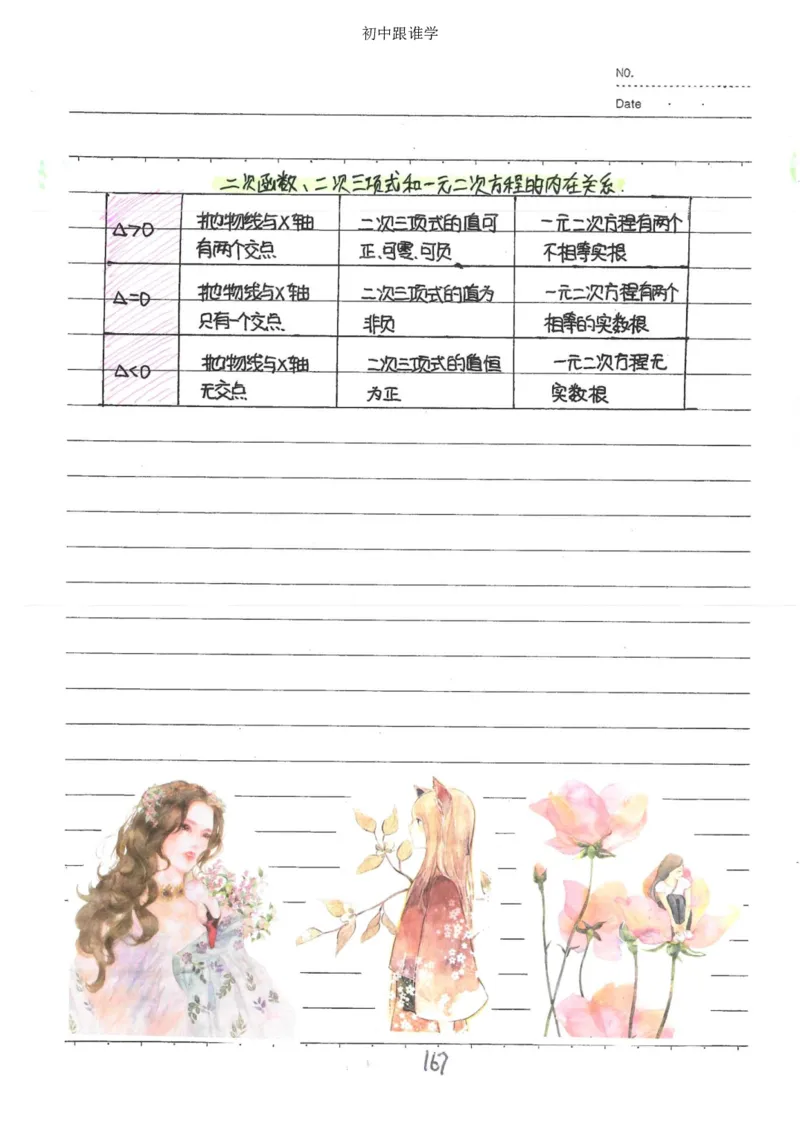 初中跟谁学
NO.
Date
二次函数、二次三项式和一元二次方程的内在关系.
Δ>0
抛物线与X轴
有两个交点
二次三项式的值可
正、可零、可负
一元二次方程有两个
不相等实根
Δ=0
抛物线与X轴
只有一个交点
二次三项式的值为
非负
一元二次方程有两个
相等的实数根
Δ<0
抛物线与X轴
无交点
二次三项式的值恒
为正
一元二次方程无
实数根
167